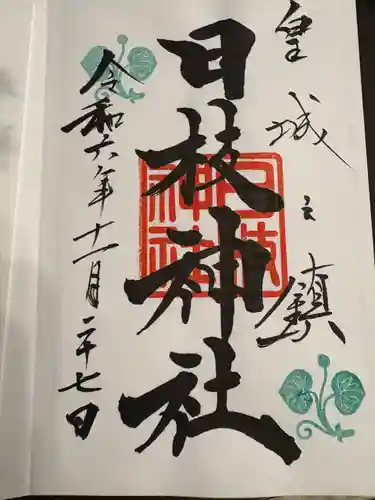 皇城之鎮
日枝神社
日枝神社
令和六年十一月二十七日